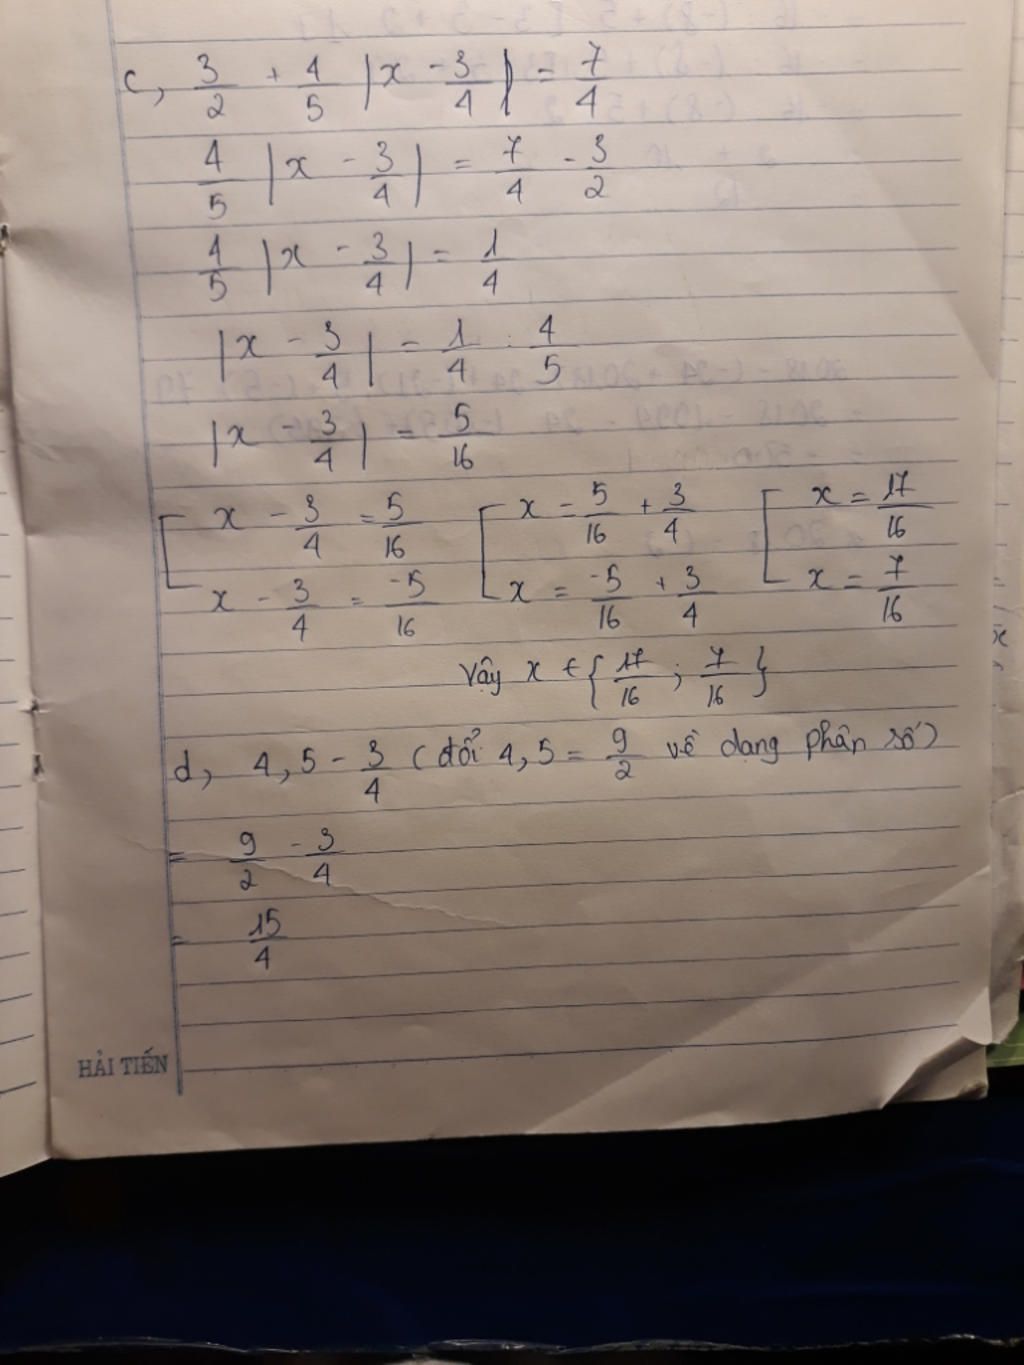 c, 3/2 + 4/5 |x - 3/4| = 7/4
4/5 |x - 3/4| = 7/4 - 3/2
4/5 |x - 3/4| = 1/4
|x - 3/4| = 1/4 : 4/5
|x - 3/4| = 5/16
[ x - 3/4 = 5/16 [ x = 5/16 + 3/4 [ x = 17/16
x - 3/4 = -5/16 x = -5/16 + 3/4 x = 7/16
Vậy x ∈ { 17/16 ; 7/16 }
d, 4,5 - 3/4 (đổi 4,5 = 9/2 về dạng phân số)
= 9/2 - 3/4
= 15/4
HẢI TIẾN